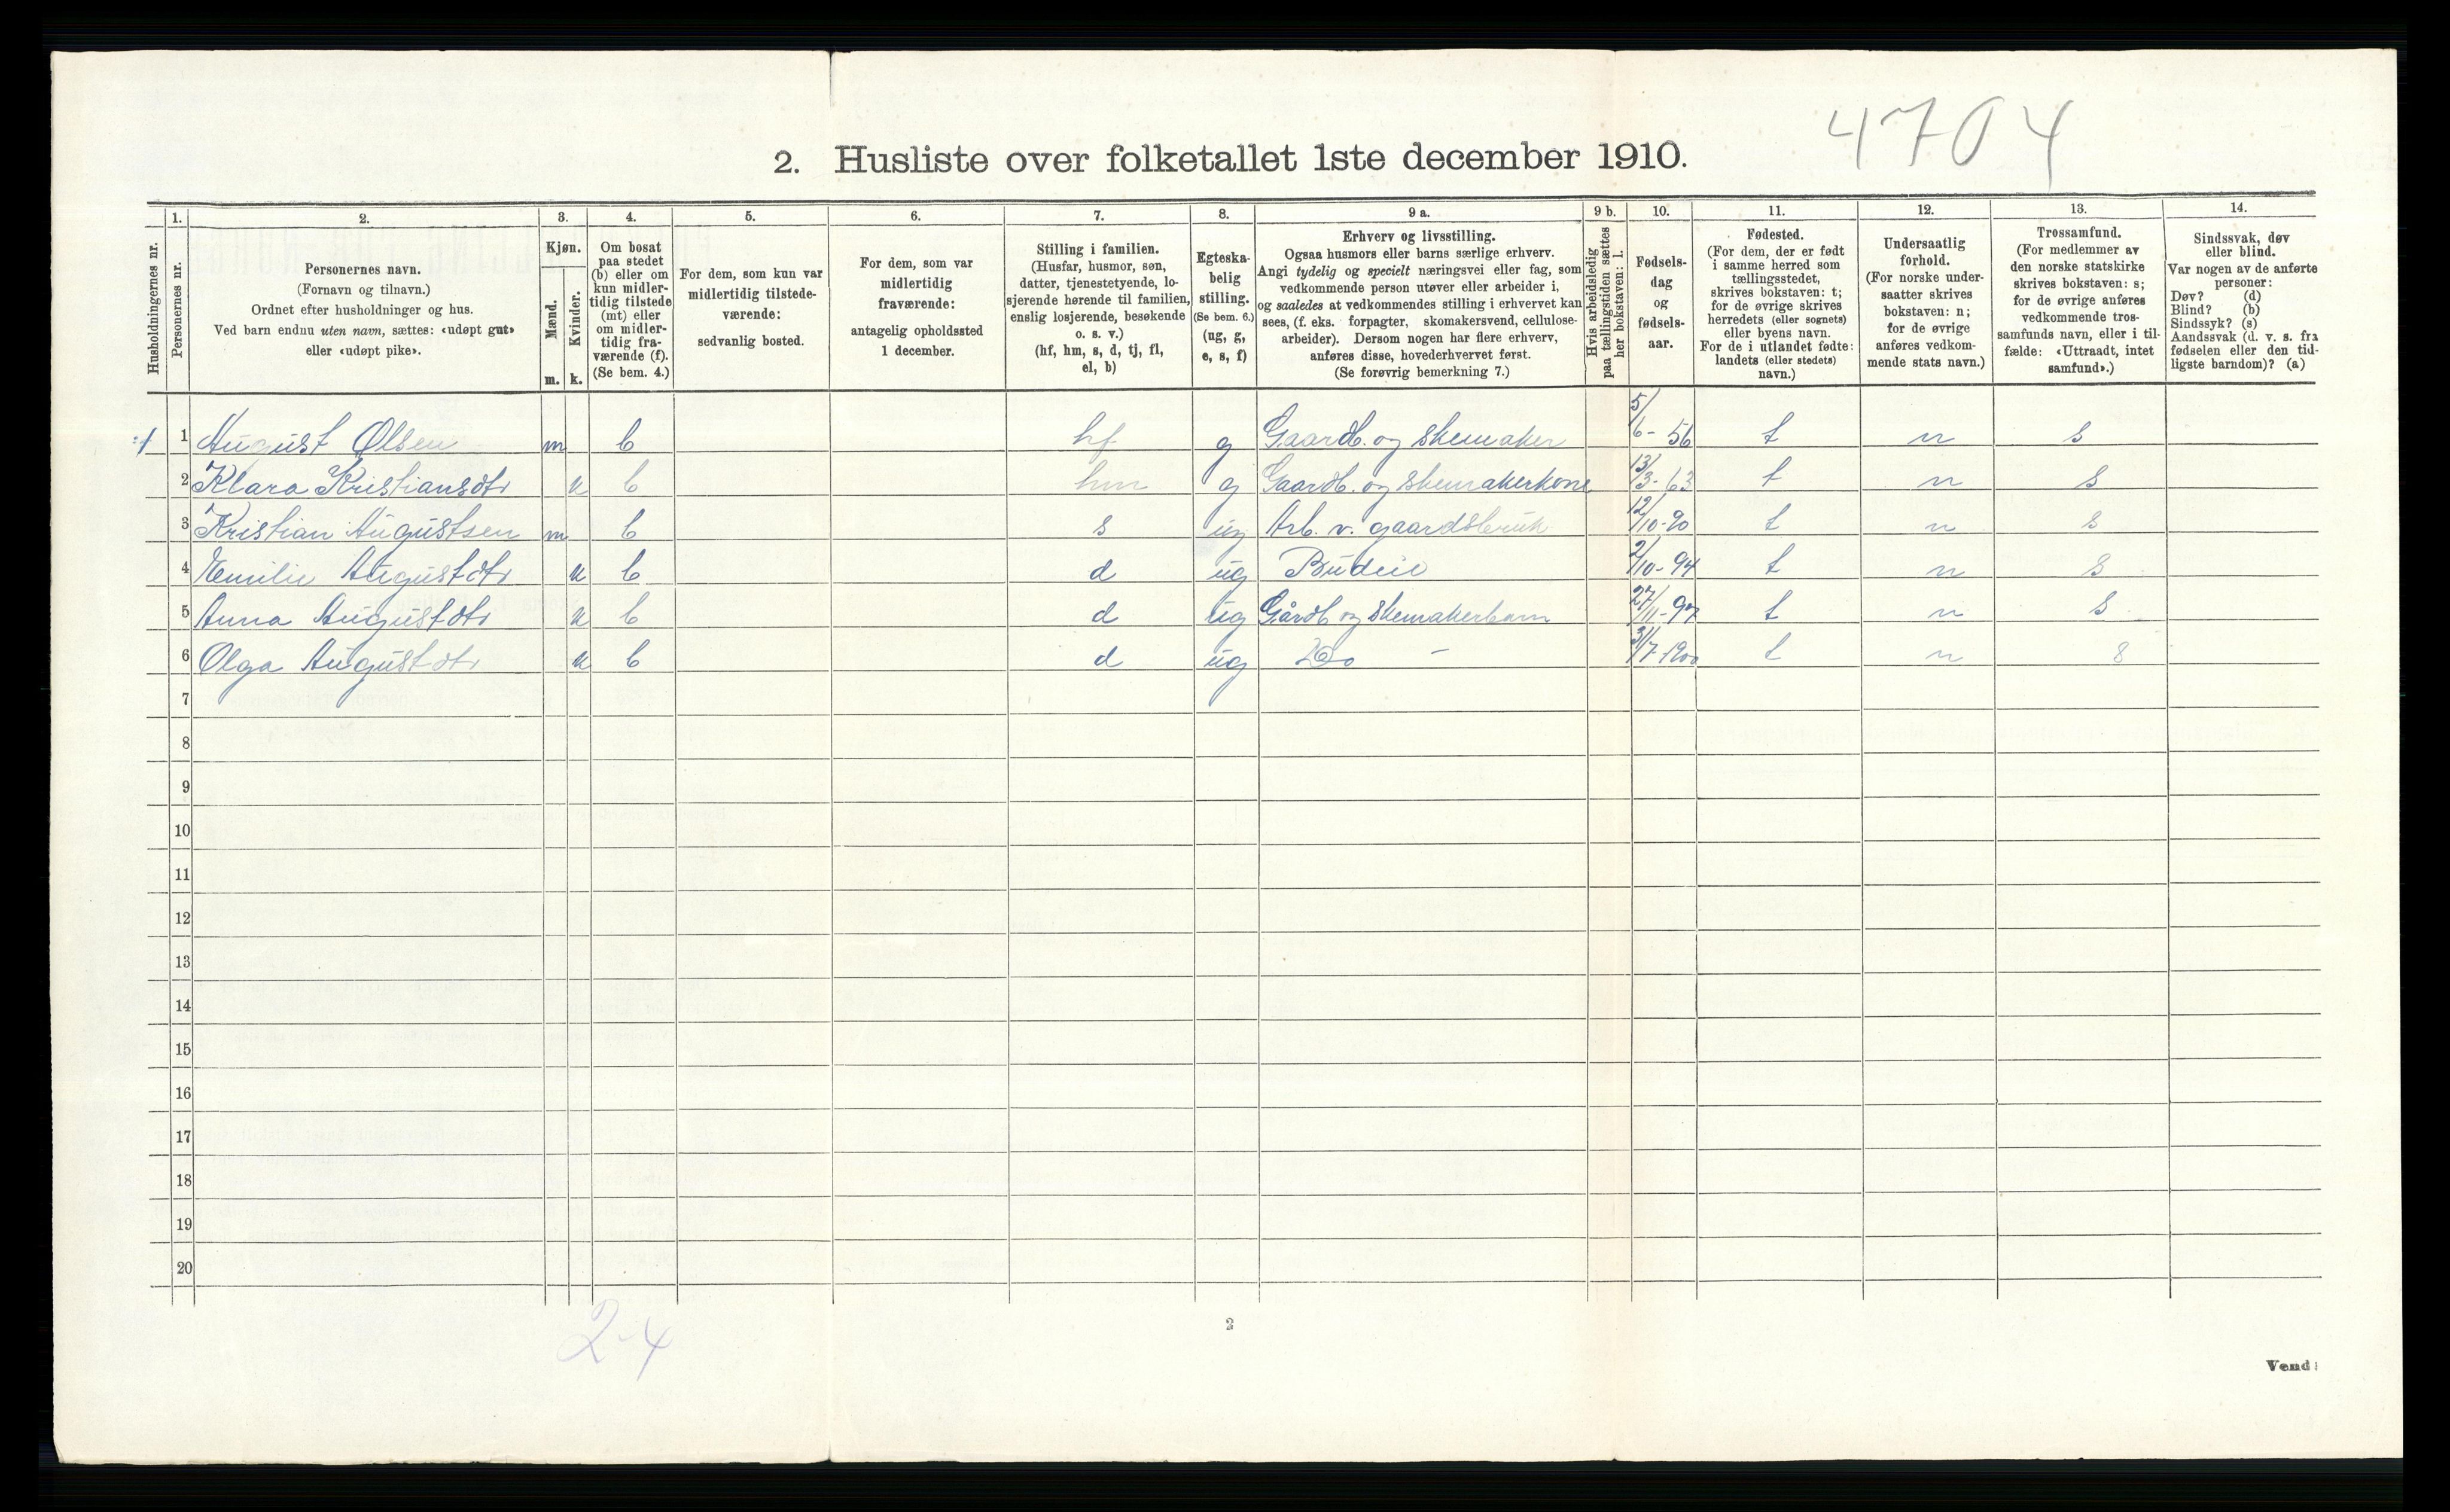 4704
2. Husliste over folketallet 1ste december 1910.
1. 2. 3. 4. 5. 6. 7. 8. 9 a. 9 b. 10. 11. 12. 13. 14.
Husholdningernes nr.
Personernes nr.
Personernes navn.
(Fornavn og tilnavn.)
Ordnet efter husholdninger og hus.
Ved barn endnu uten navn, sættes: «udøpt gut»
eller «udøpt pike».
Kjøn.
Mænd.
Kvinder.
m. k.
Om bosat
paa stedet
(b) eller om
kun midler-
tidig tilstede
(mt) eller
om midler-
tidig fra-
værende (f).
(Se bem. 4.)
For dem, som kun var
midlertidig tilstede-
værende:
sedvanlig bosted.
For dem, som var
midlertidig
fraværende:
antagelig opholdssted
1 december.
Stilling i familien.
(Husfar, husmor, søn,
datter, tjenestetyende, lo-
sjerende hørende til familien,
enslig losjerende, besøkende
o. s. v.)
(hf, hm, s, d, tj, fl,
el, b)
Egteska-
belig
stilling.
(Se bem. 6.)
(ug, g,
e, s, f)
Erhverv og livsstilling.
Ogsaa husmors eller barns særlige erhverv.
Angi tydelig og specielt næringsvei eller fag, som
vedkommende person utøver eller arbeider i,
og saaledes at vedkommendes stilling i erhvervet kan
sees, (f. eks. forpagter, skomakersvend, cellulose-
arbeider). Dersom nogen har flere erhverv,
anføres disse, hovederhvervet først.
(Se forøvrig bemerkning 7.)
Hvis arbeidsledig
paa tællingstiden sættes
her bokstaven: l.
Fødsels-
dag
og
fødsels-
aar.
Fødested.
(For dem, der er født
i samme herred som
tællingsstedet,
skrives bokstaven: t;
for de øvrige skrives
herredets (eller sognets)
eller byens navn.
For de i utlandet fødte:
landets (eller stedets)
navn.)
Undersaatlig
forhold.
(For norske under-
saatter skrives
bokstaven: n;
for de øvrige
anføres vedkom-
mende stats navn.)
Trossamfund.
(For medlemmer av
den norske statskirke
skrives bokstaven: s;
for de øvrige anføres
vedkommende tros-
samfunds navn, eller i til-
fælde: «Uttraadt, intet
samfund».)
Sindssvak, døv
eller blind.
Var nogen av de anførte
personer:
Døv? (d)
Blind? (b)
Sindssyk? (s)
Aandssvak (d. v. s. fra
fødselen eller den tid-
ligste barndom)? (a)
1 August Olsen m b hf g Gaardb. og skomaker 5/6- 56 t n s
2 Klara Kristiansdtr k b hm g Gaardb. og skomakerkone 13/3- 63 t n s
3 Kristian Augustsen m b s ug Arb. v. gaardsbruk 12/10-90 t n s
4 Emilie Augustdtr k b d ug Budeie 2/10- 94 t n s
5 Anna Augustdtr k b d ug Gårdb og skomakerbarn 27/11-97 t n s
6 Olga Augustdtr k b d ug Do - 31/7-1900 t n s
7
8
9
10
11
12
13
14
15
16
17
18
19
20
2-4
2
Vend!